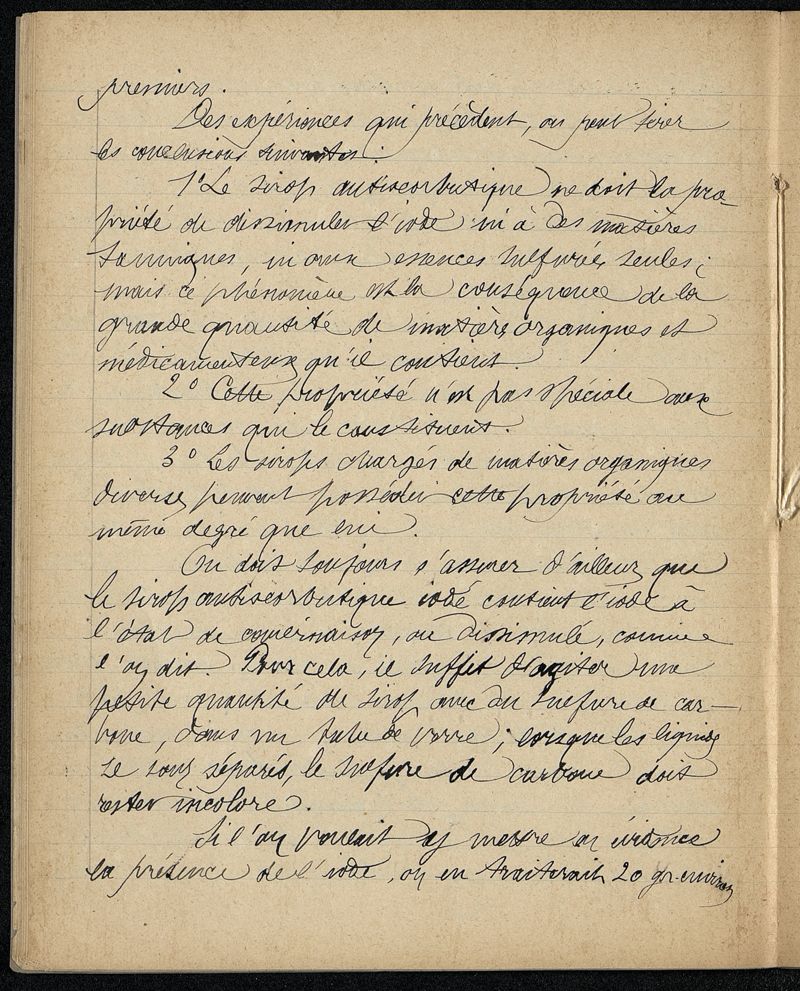 premiers.
Des expériences qui précèdent, on peut tirer
les conclusions suivantes :
1° Le sirop antiscorbutique ne doit la pro-
priété de dissimuler l'iode ni à des matières
tanniques, ni aux essences sulfurées seules ;
mais ce phénomène est la conséquence de la
grande quantité de matières organiques et
médicamenteux qu'il contient.
2° Cette propriété n'est pas spéciale aux
substances qui le constituent.
3° Les sirops chargés de matières organiques
diverses peuvent posséder cette propriété au
même degré que lui.
On doit toujours s'assurer d'ailleurs que
le sirop antiscorbutique iodé contient l'iode à
l'état de combinaison, ou dissimulé, comme
l'on dit. Pour cela, il suffit d'agiter une
petite quantité de sirop avec du sulfure de car-
bone, dans un tube de verre ; lorsque les liquides
se sont séparés, le sulfure de carbone doit
rester incolore.
Si l'on voulait y mettre en évidence
la présence de l'iode, on en traiterait 20 gr. environ